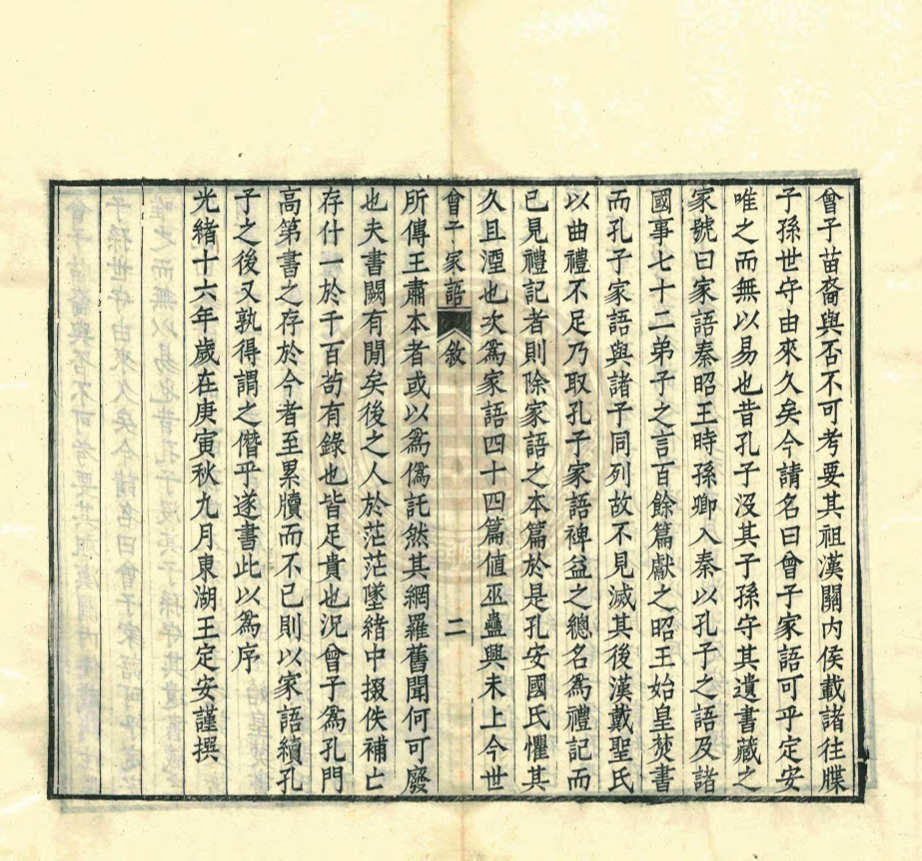 曾子苗裔與否不可考要其祖漢關內侯載諸往牒
子孫世守由來久矣今請名曰曾子家語可乎定安
唯之而無以易也昔孔子沒其子孫守其遺書藏之
家號曰家語秦昭王時孫卿入秦以孔子之語及諸
國事七十二弟子之言百餘篇獻之昭王始皇焚書
而孔子家語與諸子同列故不見滅其後漢戴聖氏
以曲禮不足乃取孔子家語裨益之總名爲禮記而
已見禮記者則除家語之本篇於是孔安國氏懼其
久且湮也次爲家語四十四篇值巫蠱興未上今世
曾子家語 敘 二
所傳王肅本者或以爲僞託然其網羅舊聞何可廢
也夫書闕有閒矣後之人於茫茫墜緒中掇佚補亡
存什一於千百苟有錄也皆足貴也況曾子爲孔門
高第書之存於今者至累牘而不已則以家語續孔
子之後又孰得謂之僭乎遂書此以爲序
光緒十六年歲在庚寅秋九月東湖王定安謹撰